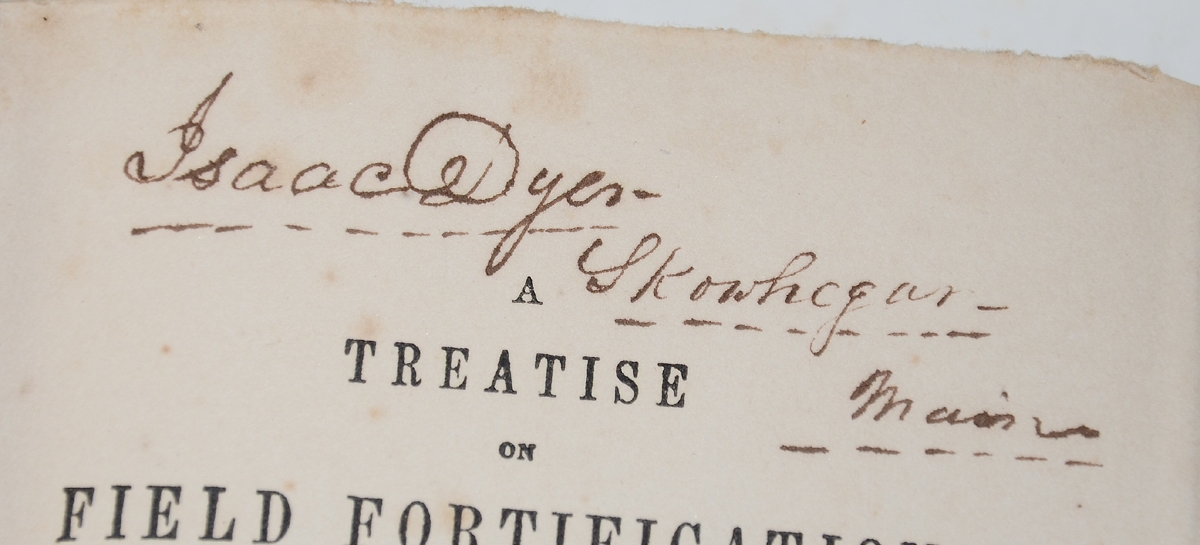 Isaac Dyer
Skowhegan
A
TREATISE
Maine
ON
FIELD FORTIFICATION